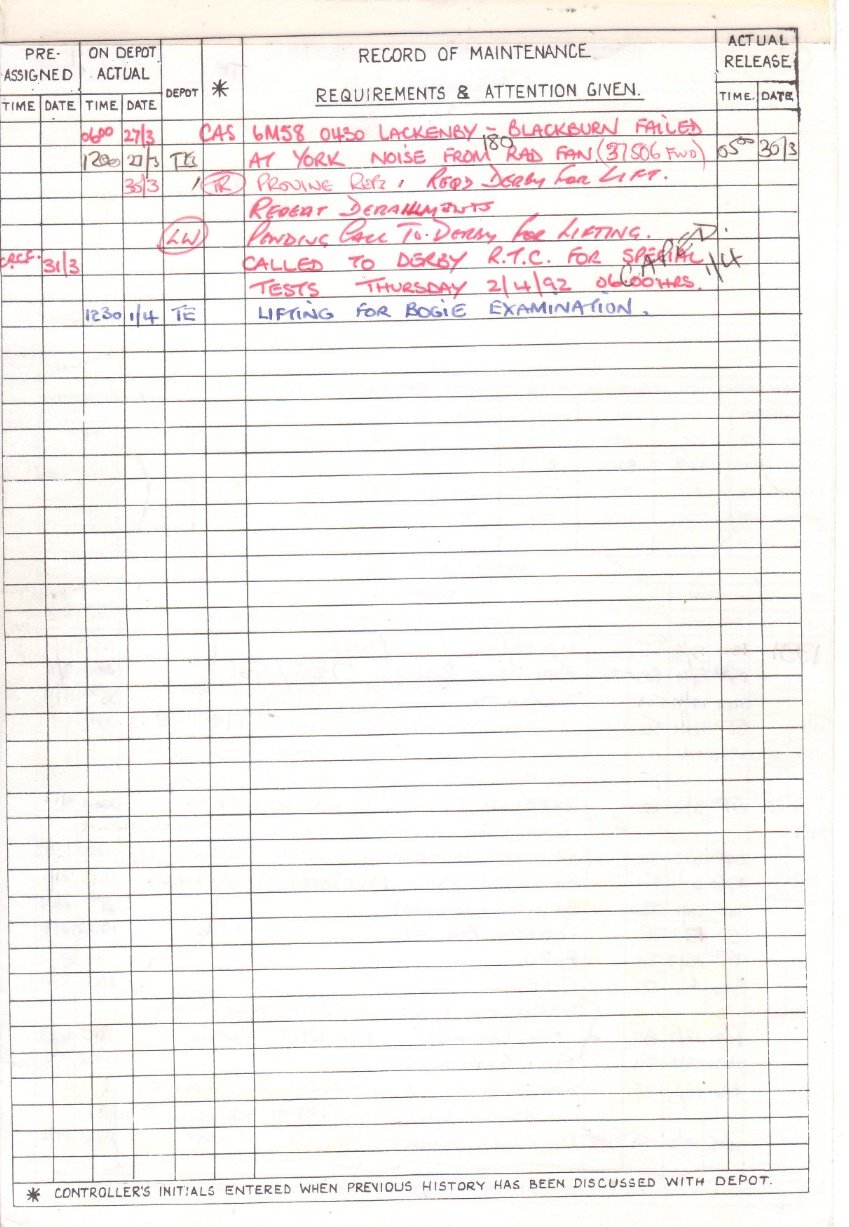 PRE- ASSIGNED ON DEPOT ACTUAL DEPOT * RECORD OF MAINTENANCE ACTUAL RELEASE
TIME DATE TIME DATE REQUIREMENTS & ATTENTION GIVEN. TIME. DATE
0600 27/3 CAS 6M58 0430 LACKENBY - BLACKBURN FAILED
1200 27/3 TE AT YORK NOISE FROM '80 RAD FAN (37506 FWD) 0500 30/3
30/3 TR REQD DERBY FOR LIFT.
REPEAT DERAILMENTS
LW PENDING CALL TO DERBY FOR LIFTING.
31/3 CALLED TO DERBY R.T.C. FOR SPECIAL
TESTS THURSDAY 2/4/92 0600HRS. 1/4
1230 1/4 TE LIFTING FOR BOGIE EXAMINATION.
* CONTROLLER'S INITIALS ENTERED WHEN PREVIOUS HISTORY HAS BEEN DISCUSSED WITH DEPOT.